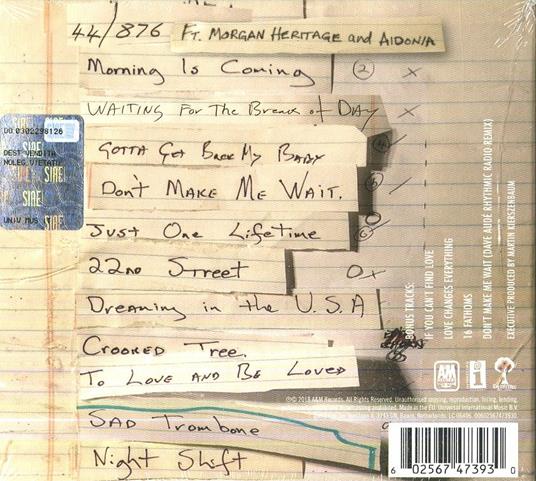 44/876 FT. MORGAN HERITAGE and AIDONIA
Morning Is Coming 2 x
WAITING For The Break of DAY x
GOTTA Get Back My Baby
DON'T MAKE ME WAIT.
Just One Lifetime
22nd Street
Dreaming in the U.S.A
CROOKED TREE.
To LOVE AND BE LOVED
SAD Trombone
Night Shift
DO 0302298126
SIAE
DEST VENDITA
NOLEG VIETATO
UNIV MUS
BONUS TRACKS:
IF YOU CAN'T FIND LOVE
LOVE CHANGES EVERYTHING
16 FATHOMS
DON'T MAKE ME WAIT (DAVE AUDÉ RHYTHMIC RADIO REMIX)
EXECUTIVE PRODUCED BY MARTIN KIERSZENBAUM
A&M
℗© 2018 A&M Records. All Rights Reserved. Unauthorised copying, reproduction, hiring, lending,
prohibited. Made in the EU. Universal International Music B.V.
Baarn, Netherlands. LC 00485. 00602567473930
6 02567 47393 0